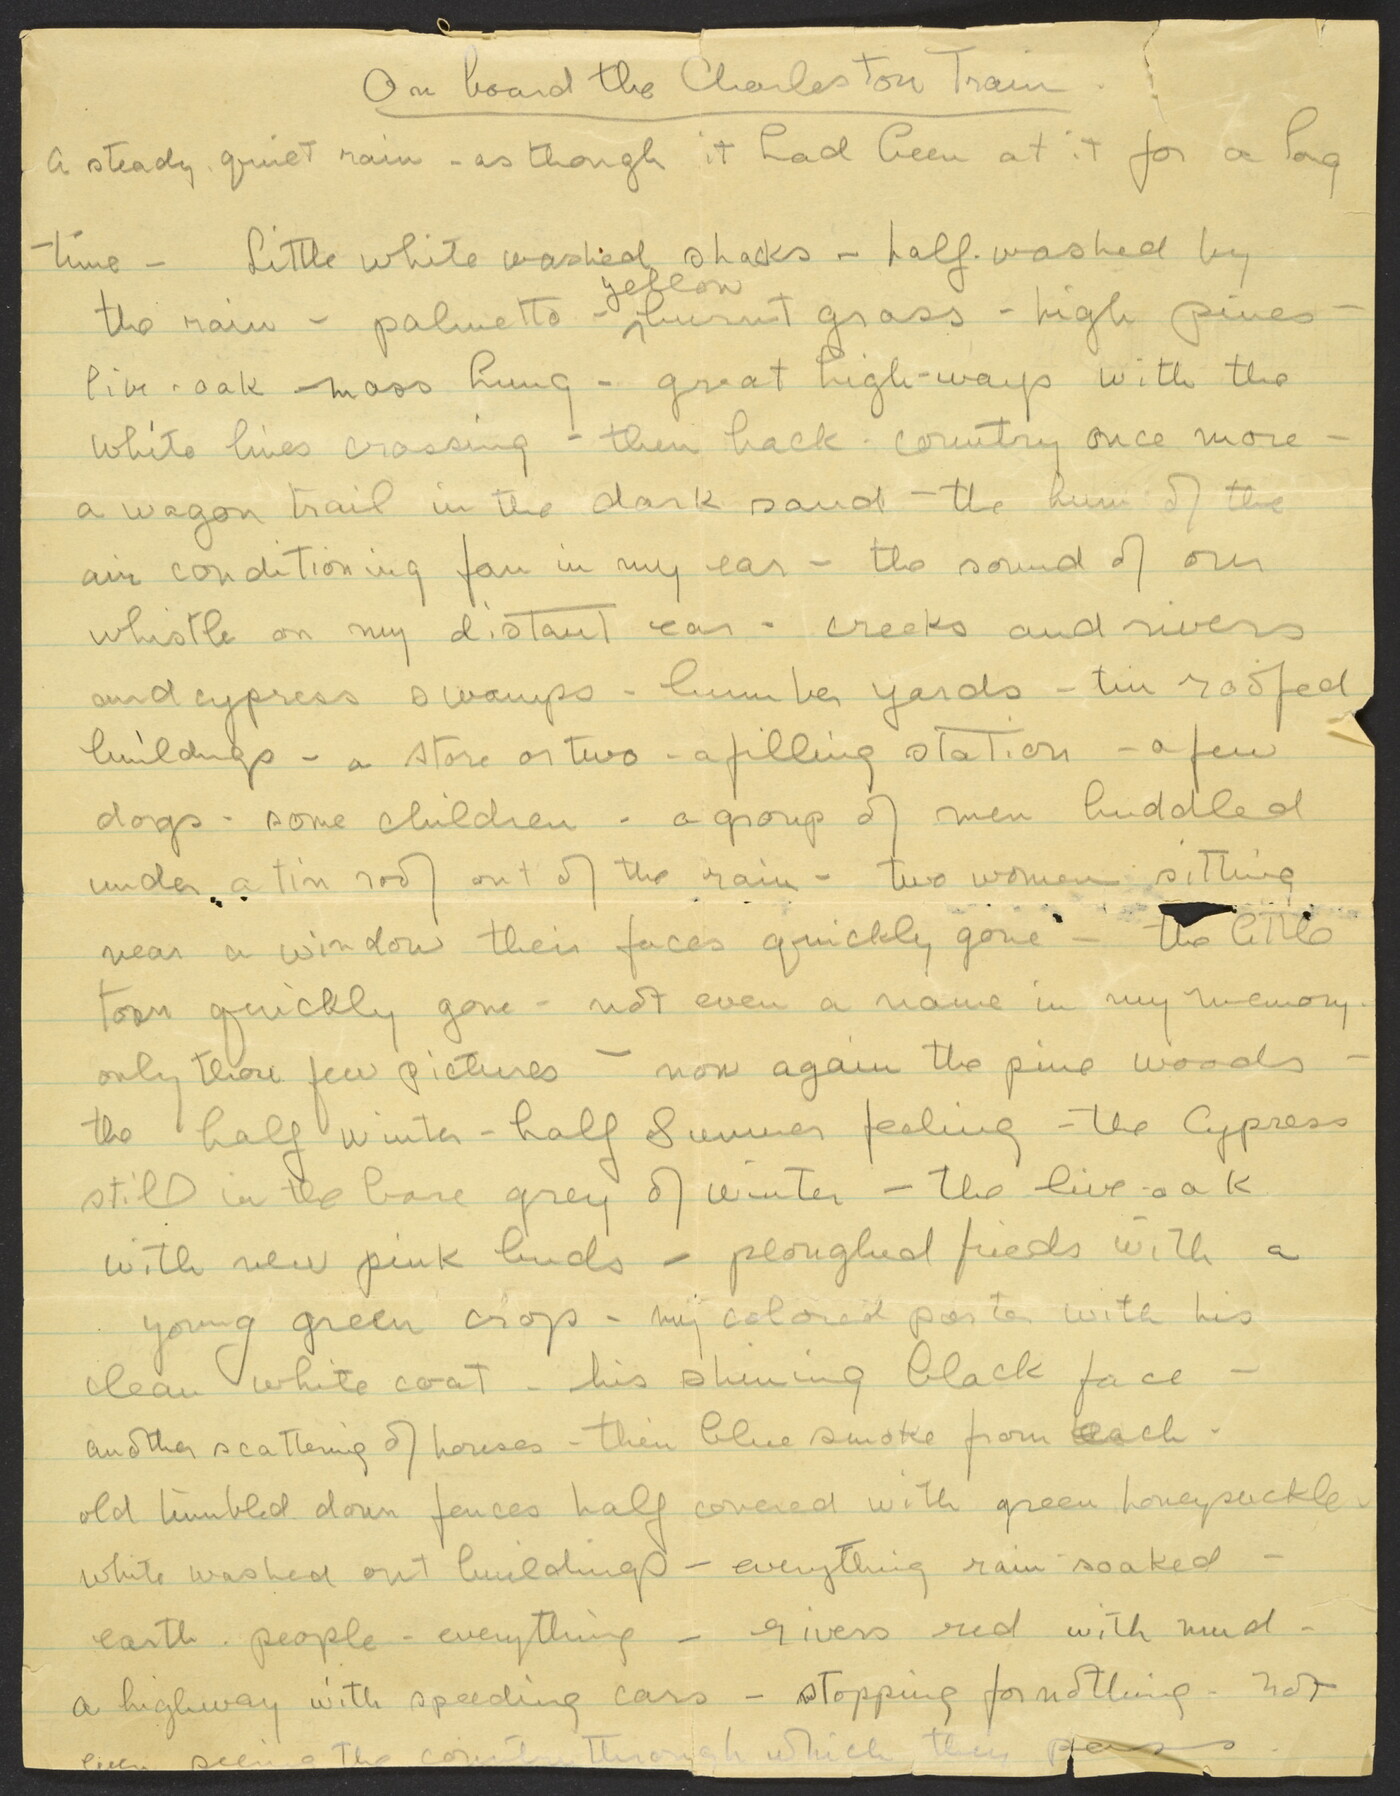 On board the Charleston Train.
A steady quiet rain - as though it had been at it for a long
time - Little white washed shacks - half-washed by
yellow
the rain - palmetto - burnt grass - high pines -
live-oak - moss hung - great high-ways with the
white lines crossing - then back-country once more -
a wagon trail in the dark sand - the hum of the
air conditioning fan in my ear - the sound of our
whistle on my distant ear - creeks and rivers
and cypress swamps - lumber yards - tin roofed
buildings - a store or two - a filling station - a few
dogs - some children - a group of men huddled
under a tin roof out of the rain - two women sitting
near a window their faces quickly gone - the little
town quickly gone - not even a name in my memory.
only those few pictures - now again the pine woods -
the half winter - half Summer feeling - the Cypress
still in the bare grey of winter - the live-oak
with new pink buds - ploughed fields with a
young green crop - my colored porter with his
clean white coat - his shining black face -
another scattering of houses - thin blue smoke from each -
old tumbled down fences half covered with green honeysuckle -
white washed out buildings - everything rain-soaked -
earth - people - everything - rivers red with mud -
a highway with speeding cars - stopping for nothing - not
even seeing the country through which they pass.